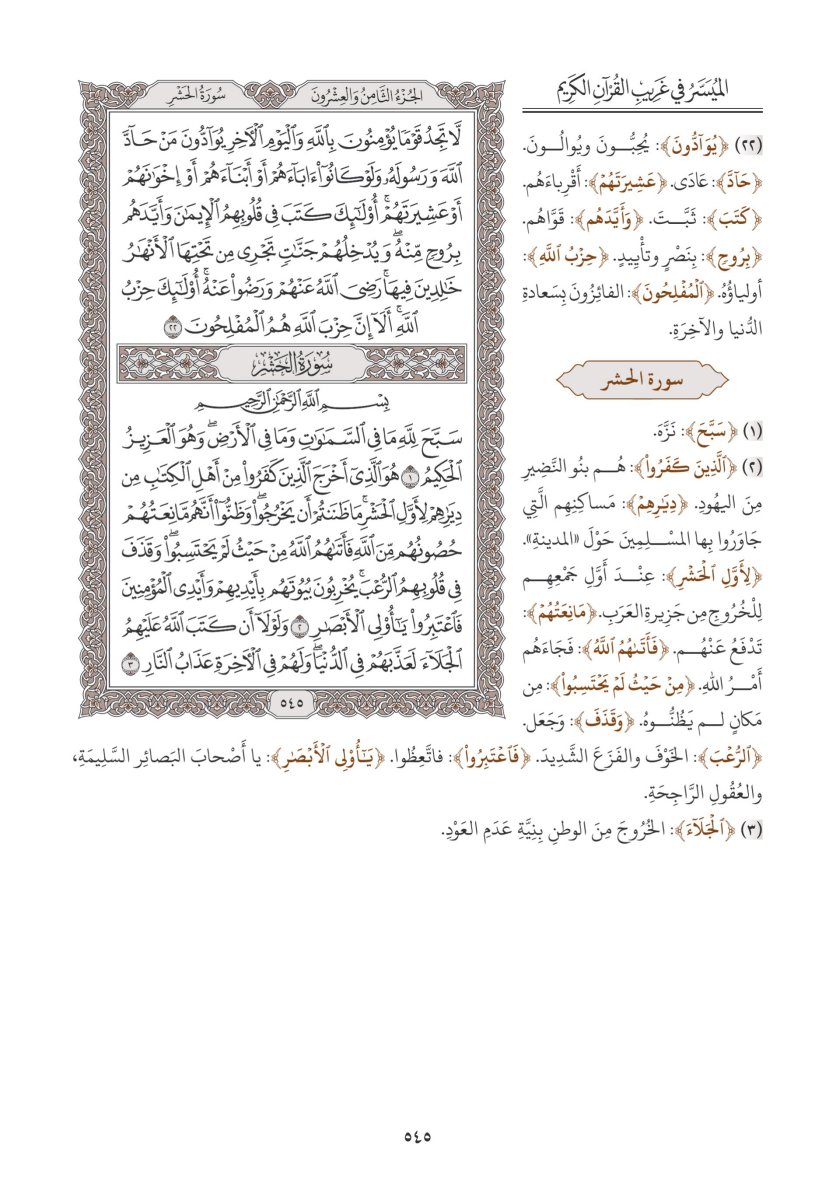 الميسر في غريب القرآن الكريم
الجزء الثامن والعشرون
سورة الحشر
لَّا تَجِدُ قَوْمًا يُؤْمِنُونَ بِٱللَّهِ وَٱلْيَوْمِ ٱلْأَخِرِ يُوَآدُّونَ مَنْ حَآدَّ
ٱللَّهَ وَرَسُولَهُۥ وَلَوْ كَانُوٓا۟ ءَابَآءَهُمْ أَوْ أَبْنَآءَهُمْ أَوْ إِخْوَٰنَهُمْ
أَوْ عَشِيرَتَهُمْ ۚ أُو۟لَٰٓئِكَ كَتَبَ فِى قُلُوبِهِمُ ٱلْإِيمَٰنَ وَأَيَّدَهُم
بِرُوحٍ مِّنْهُ ۖ وَيُدْخِلُهُمْ جَنَّٰتٍ تَجْرِى مِن تَحْتِهَا ٱلْأَنْهَٰرُ
خَٰلِدِينَ فِيهَا ۚ رَضِىَ ٱللَّهُ عَنْهُمْ وَرَضُوا۟ عَنْهُ ۚ أُو۟لَٰٓئِكَ حِزْبُ
ٱللَّهِ ۚ أَلَآ إِنَّ حِزْبَ ٱللَّهِ هُمُ ٱلْمُفْلِحُونَ ٢٢
سورة الحشر
بِسْمِ ٱللَّهِ ٱلرَّحْمَٰنِ ٱلرَّحِيمِ
سَبَّحَ لِلَّهِ مَا فِى ٱلسَّمَٰوَٰتِ وَمَا فِى ٱلْأَرْضِ ۖ وَهُوَ ٱلْعَزِيزُ
ٱلْحَكِيمُ ١ هُوَ ٱلَّذِىٓ أَخْرَجَ ٱلَّذِينَ كَفَرُوا۟ مِنْ أَهْلِ ٱلْكِتَٰبِ مِن
دِيَٰرِهِمْ لِأَوَّلِ ٱلْحَشْرِ ۚ مَا ظَنَنتُمْ أَن يَخْرُجُوا۟ ۖ وَظَنُّوٓا۟ أَنَّهُم مَّانِعَتُهُمْ
حُصُونُهُم مِّنَ ٱللَّهِ فَأَتَىٰهُمُ ٱللَّهُ مِنْ حَيْثُ لَمْ يَحْتَسِبُوا۟ ۖ وَقَذَفَ
فِى قُلُوبِهِمُ ٱلرُّعْبَ ۚ يُخْرِبُونَ بُيُوتَهُم بِأَيْدِيهِمْ وَأَيْدِى ٱلْمُؤْمِنِينَ
فَٱعْتَبِرُوا۟ يَٰٓأُو۟لِى ٱلْأَبْصَٰرِ ٢ وَلَوْلَآ أَن كَتَبَ ٱللَّهُ عَلَيْهِمُ
ٱلْجَلَآءَ لَعَذَّبَهُمْ فِى ٱلدُّنْيَا ۖ وَلَهُمْ فِى ٱلْأَخِرَةِ عَذَابُ ٱلنَّارِ ٣
٥٤٥
(٢٢) ﴿يُوَآدُّونَ﴾: يُحِبُّونَ ويُوالُونَ.
﴿حَآدَّ﴾: عَادَى. ﴿عَشِيرَتَهُمْ﴾: أَقْرِباءَهُم.
﴿كَتَبَ﴾: ثَبَّتَ. ﴿وَأَيَّدَهُم﴾: قَوَّاهُم.
﴿بِرُوحٍ﴾: بِنَصْرٍ وتأْيِيدٍ. ﴿حِزْبُ ٱللَّهِ﴾:
أولياؤُهُ. ﴿ٱلْمُفْلِحُونَ﴾: الفائِزُونَ بِسَعادةِ
الدُّنيا والآخِرَةِ.
سورة الحشر
(١) ﴿سَبَّحَ﴾: نَزَّهَ.
(٢) ﴿ٱلَّذِينَ كَفَرُوا۟﴾: هُم بنُو النَّضِيرِ
مِنَ اليهُودِ. ﴿دِيَٰرِهِمْ﴾: مَساكنِهِم الَّتِي
جَاوَرُوا بِها المسْلِمِينَ حَوْلَ «المدينةِ».
﴿لِأَوَّلِ ٱلْحَشْرِ﴾: عِنْدَ أَوَّلِ جَمْعِهِم
لِلْخُروجِ مِن جَزِيرةِ العَرَبِ. ﴿مَانِعَتُهُمْ﴾:
تَدْفَعُ عَنْهُم. ﴿فَأَتَىٰهُمُ ٱللَّهُ﴾: فَجَاءَهُم
أَمْرُ اللهِ. ﴿مِنْ حَيْثُ لَمْ يَحْتَسِبُوا۟﴾: مِن
مَكانٍ لم يَظُنُّوهُ. ﴿وَقَذَفَ﴾: وَجَعَل.
﴿ٱلرُّعْبَ﴾: الخَوْفَ والفَزَعَ الشَّدِيدَ. ﴿فَٱعْتَبِرُوا۟﴾: فاتَّعِظُوا. ﴿يَٰٓأُو۟لِى ٱلْأَبْصَٰرِ﴾: يا أَصْحابَ البَصائِرِ السَّلِيمَةِ،
والعُقُولِ الرَّاجِحَةِ.
(٣) ﴿ٱلْجَلَآءَ﴾: الخُرُوجَ مِنَ الوطنِ بِنِيَّةِ عَدَمِ العَوْدِ.
٥٤٥